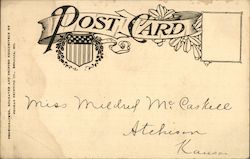 POST CARD
Miss Mildred McCaskell
Atchison
Kansas